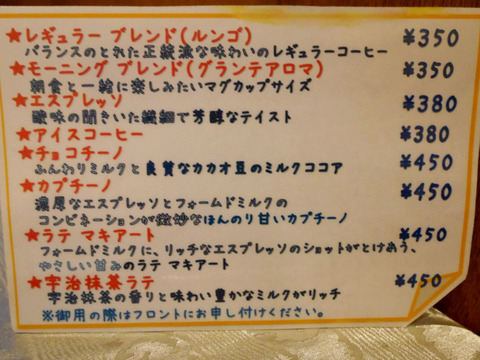 ★レギュラー ブレンド(ルンゴ) ¥350
バランスのとれた正統派な味わいのレギュラーコーヒー
★モーニング ブレンド(グランテアロマ) ¥350
朝食と一緒に楽しみたいマグカップサイズ
★エスプレッソ ¥380
酸味の聞きいた繊細で芳醇なテイスト
★アイスコーヒー ¥380
★チョコチーノ ¥450
ふんわりミルクと良質なカカオ豆のミルクココア
★カプチーノ ¥450
濃厚なエスプレッソとフォームドミルクの
コンビネーションが微妙なほんのり甘いカプチーノ
★ラテ マキアート ¥450
フォームドミルクに、リッチなエスプレッソのショットがとけあう、
やさしい甘みのラテ マキアート
★宇治抹茶ラテ ¥450
宇治抹茶の香りと味わい豊かなミルクがリッチ
※御用の際はフロントにお申し付けください。